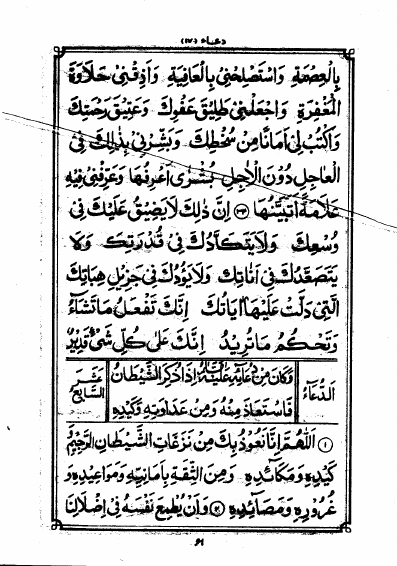 دعاء (١٧)
بِالْعِصْمَةِ وَاسْتَصْلِحْنِي بِالْعَافِيَةِ وَأَذِقْنِي حَلَاوَةَ
الْمَغْفِرَةِ وَاجْعَلْنِي طَلِيقَ عَفْوِكَ وَعَتِيقَ رَحْمَتِكَ
وَاكْتُبْ لِي أَمَانًا مِنْ سُخْطِكَ وَبَشِّرْنِي بِذٰلِكَ فِي
الْعَاجِلِ دُوْنَ الْآجِلِ بُشْرٰى أَعْرِفُهَا وَعَرِّفْنِي فِيهِ
عَلَامَةً أَتَبَيَّنُهَا (٣٣) إِنَّ ذٰلِكَ لَا يَضِيقُ عَلَيْكَ فِي
وُسْعِكَ وَلَا يَتَكَأَّدُكَ فِي قُدْرَتِكَ وَلَا
يَتَصَعَّدُكَ فِي أَنَاتِكَ وَلَا يَؤُدُكَ فِي جَزِيلِ هِبَاتِكَ
الَّتِي دَلَّتْ عَلَيْهَا آيَاتُكَ إِنَّكَ تَفْعَلُ مَا تَشَاءُ
وَتَحْكُمُ مَا تُرِيدُ إِنَّكَ عَلٰى كُلِّ شَيْءٍ قَدِيْرٌ
الدُّعَاءُ
وَكَانَ مِنْ دُعَائِهِ عَلَيْهِ السَّلَامُ إِذَا ذُكِرَ الشَّيْطَانُ
فَاسْتَعَاذَ مِنْهُ وَمِنْ عَدَاوَتِهِ وَكَيْدِهِ
السَّابِعَ عَشَرَ
(١) اَللّٰهُمَّ إِنَّا نَعُوذُ بِكَ مِنْ نَزَغَاتِ الشَّيْطَانِ الرَّجِيْمِ وَ
كَيْدِهِ وَمَكَائِدِهِ وَمِنَ الثِّقَةِ بِأَمَانِيِّهِ وَمَوَاعِيدِهِ وَ
غُرُورِهِ وَمَصَائِدِهِ (٢) وَأَنْ يُطْمِعَ نَفْسَهُ فِي إِضْلَالِنَا
٦١